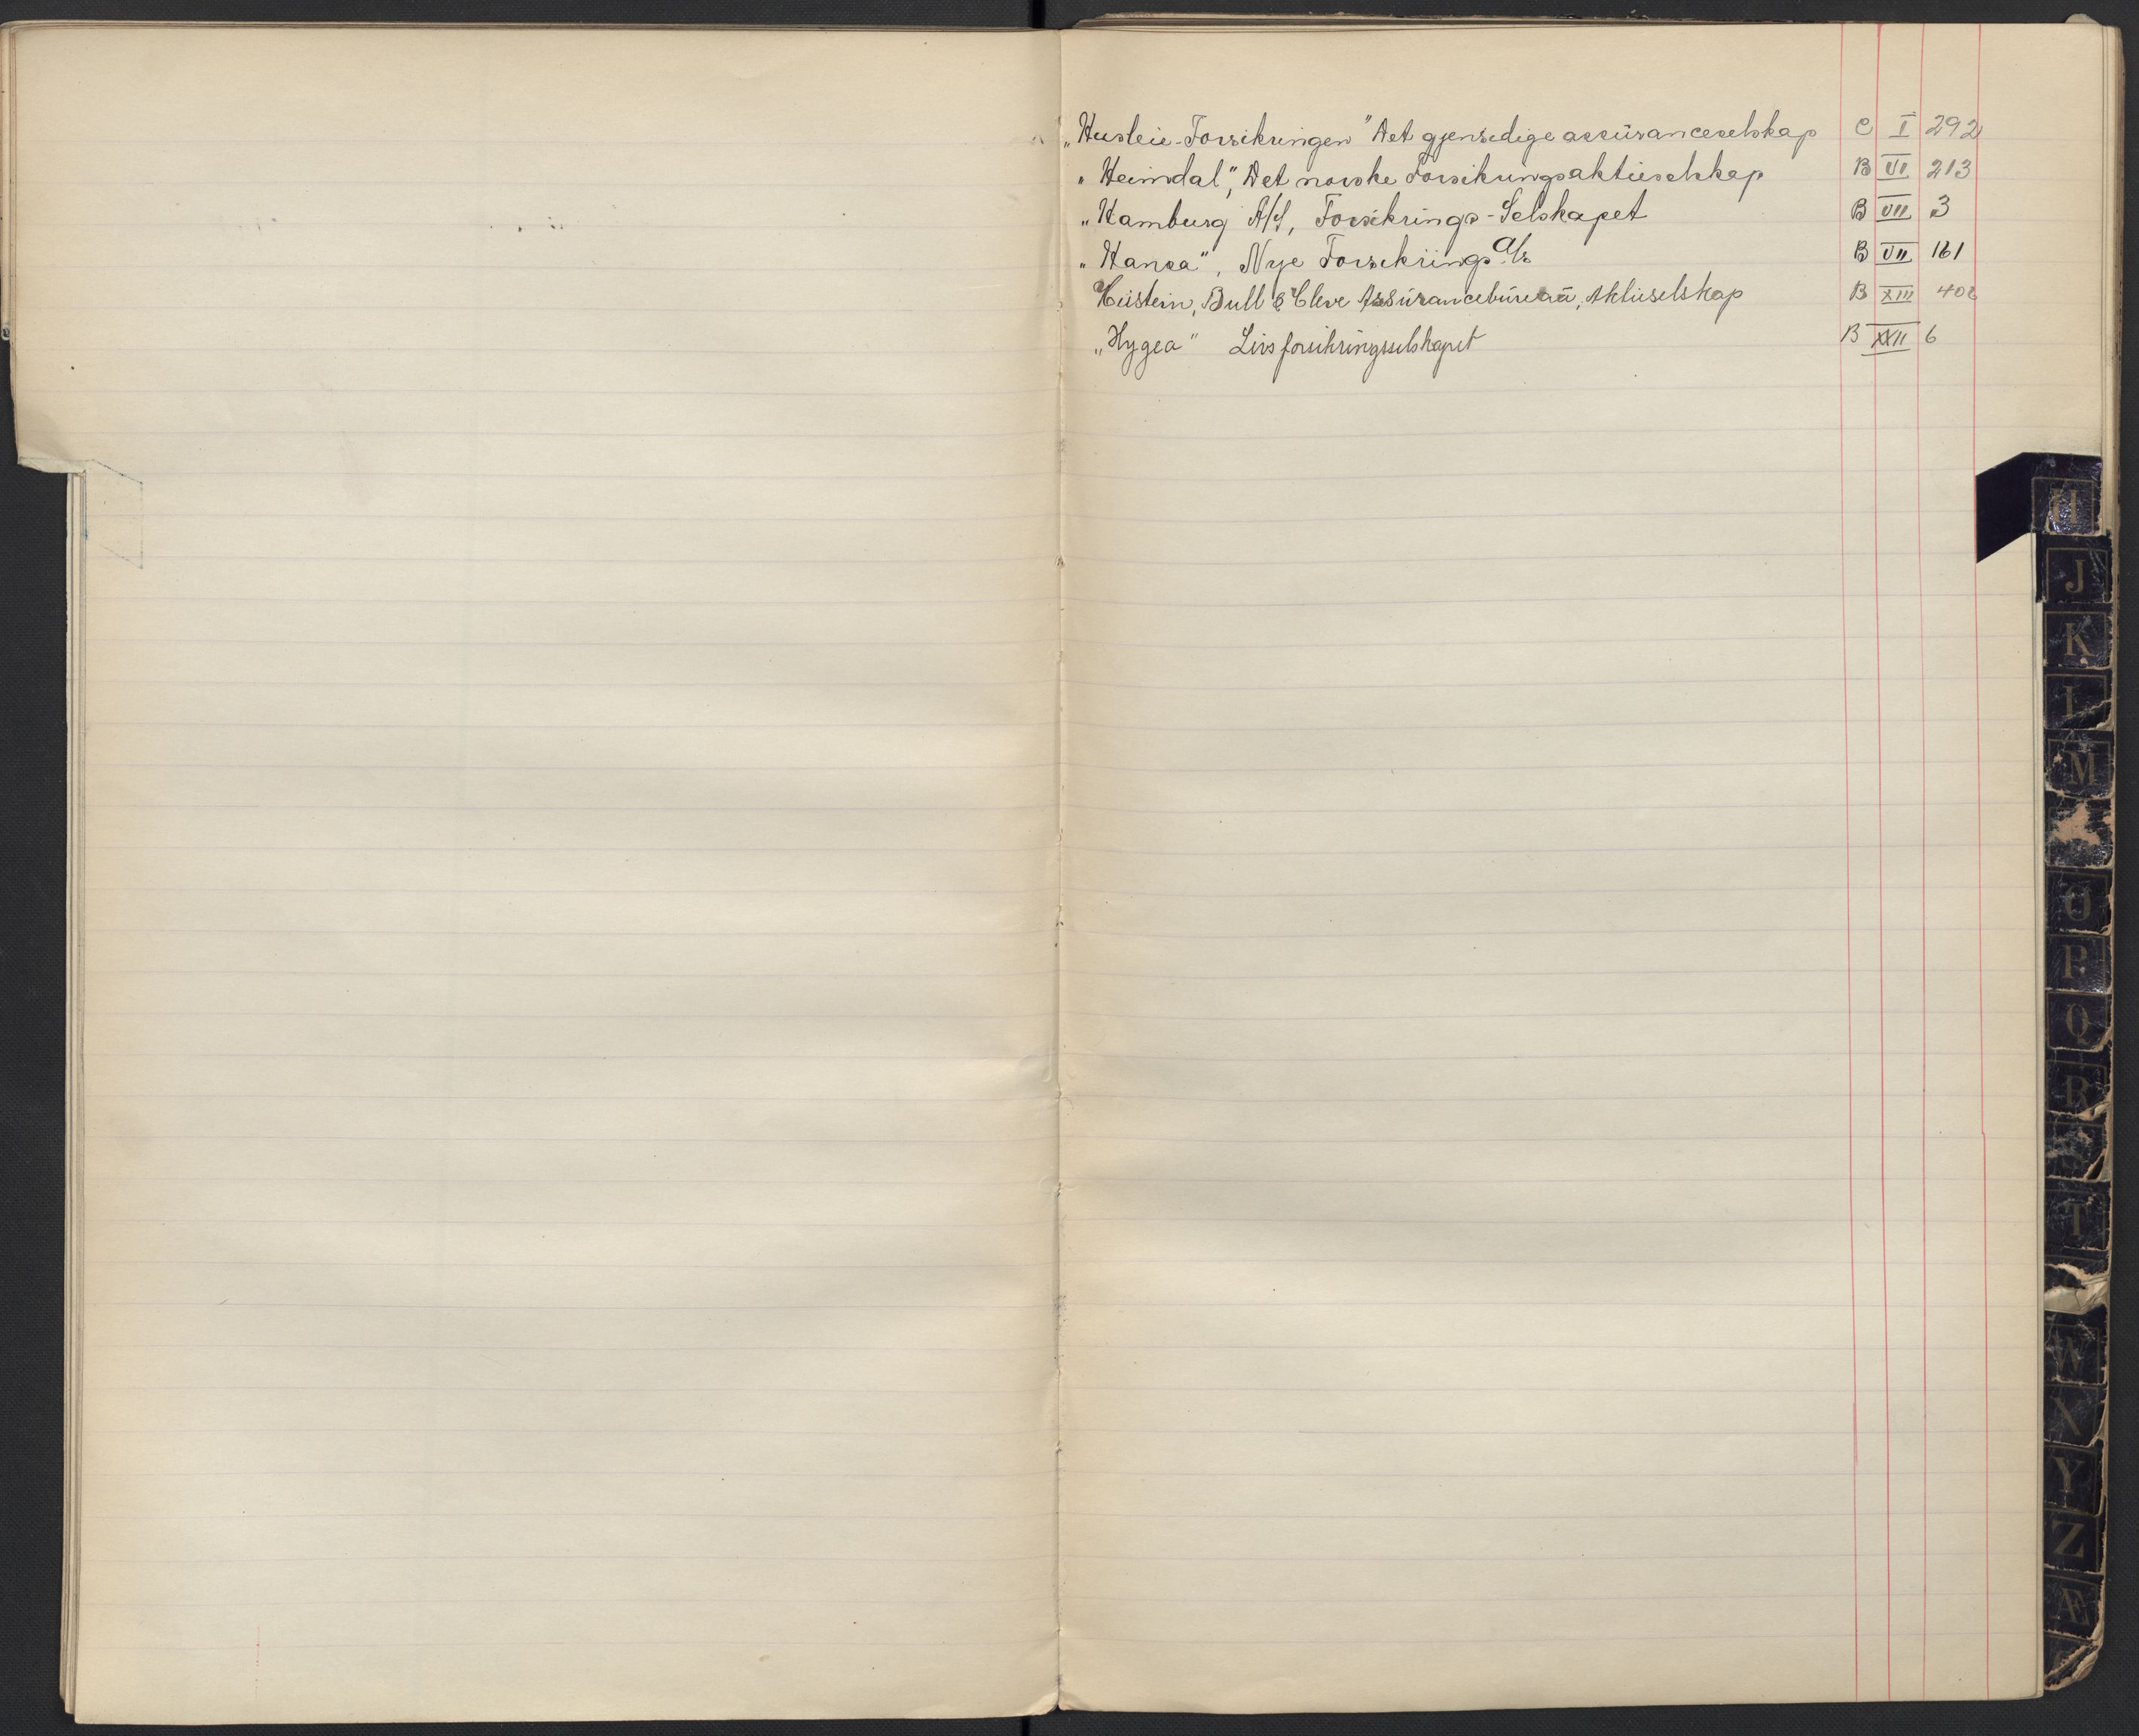 „Husleie-Forsikringen" Det gjensidige assüranceselskap C I 292
„Heimdal", Det norske Forsikringsaktieselskap B VI 213
„Hamburg A/S, Forsikrings-Selskapet B VII 3
„Hansa", Nye Forsikrings A/s B VII 161
Heistein, Bull & Cleve Assürancebüreaü, Aktieselskap B XIII 402
„Hygea" Livsforsikringsselskapet B XXII 6
H
J
K
L
M
O
P
Q
R
S
T
W
X
Y
Z
Æ